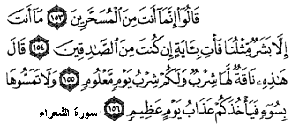 قَالُوٓا۟ إِنَّمَآ أَنتَ مِنَ ٱلْمُسَحَّرِينَ ١٥٣ مَآ أَنتَ
إِلَّا بَشَرٌ مِّثْلُنَا فَأْتِ بِـَٔايَةٍ إِن كُنتَ مِنَ ٱلصَّـٰدِقِينَ ١٥٤ قَالَ
هَـٰذِهِۦ نَاقَةٌ لَّهَا شِرْبٌ وَلَكُمْ شِرْبُ يَوْمٍ مَّعْلُومٍ ١٥٥ وَلَا تَمَسُّوهَا
بِسُوٓءٍ فَيَأْخُذَكُمْ عَذَابُ يَوْمٍ عَظِيمٍ ١٥٦ سورة الشعراء